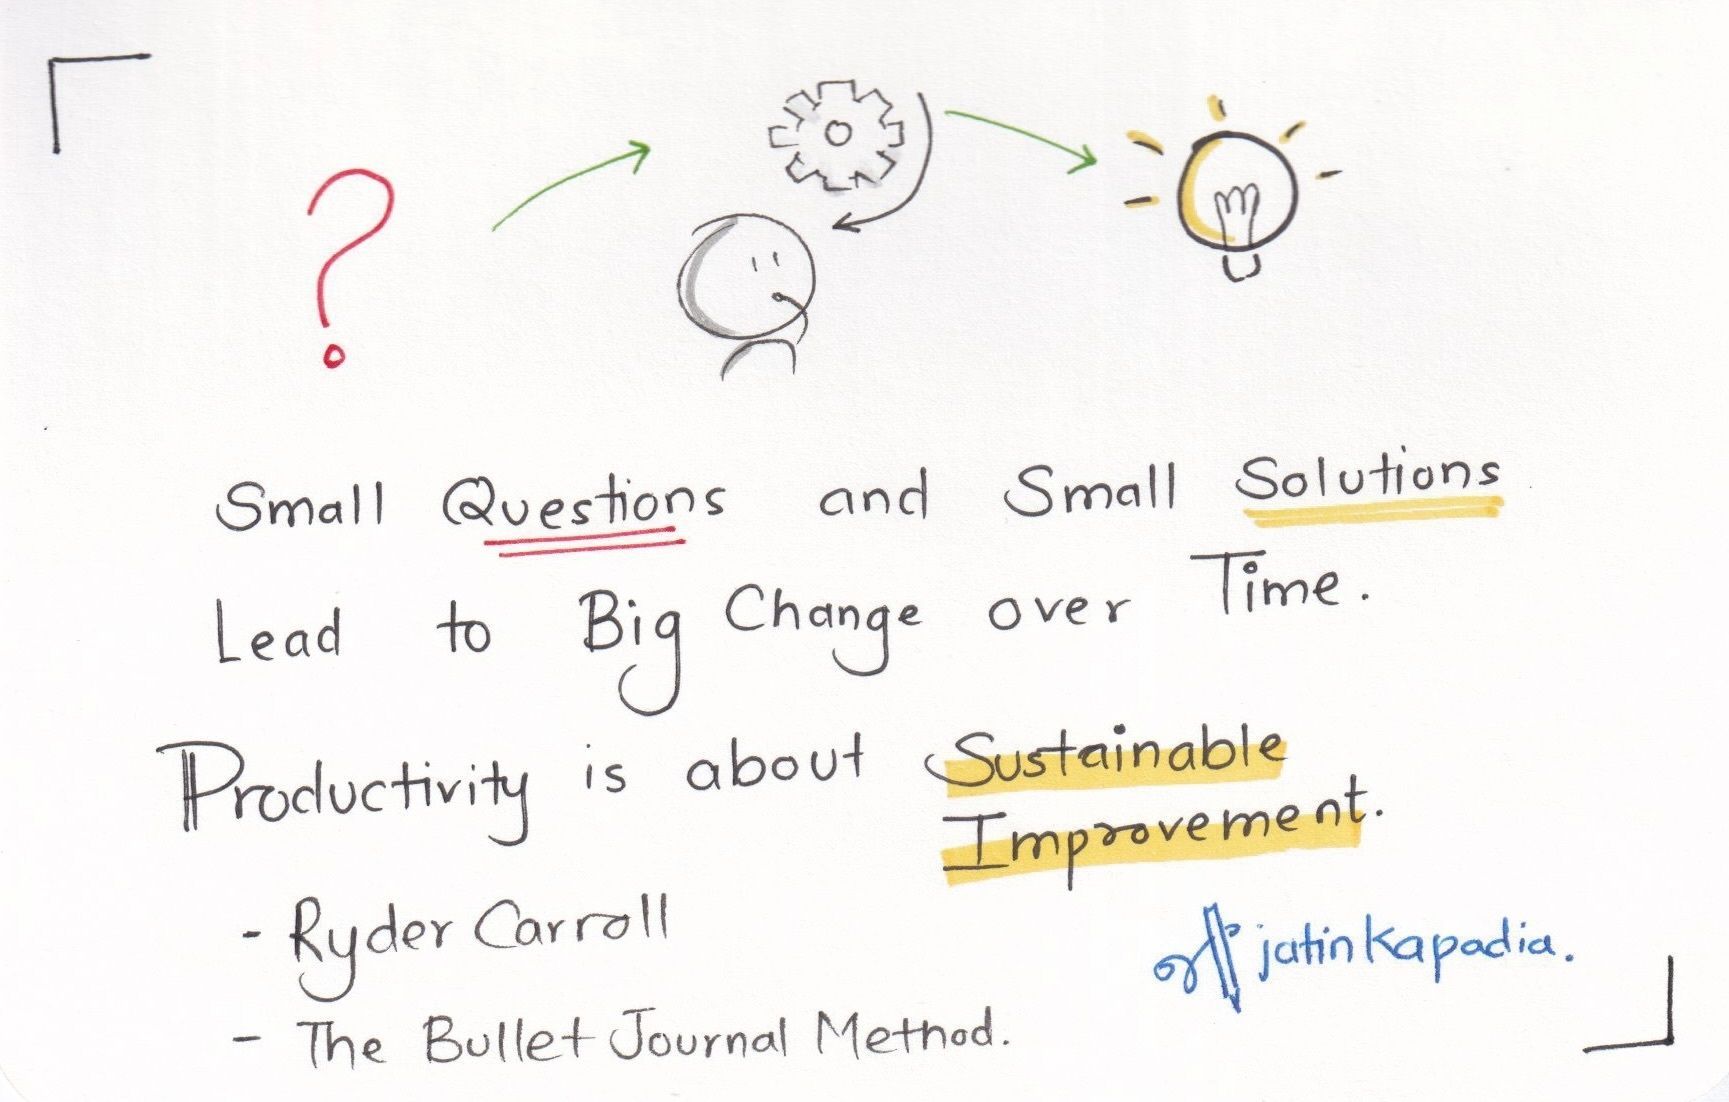 Small Questions and Small Solutions
Lead to Big Change over Time.
Productivity is about Sustainable
Improvement.
- Ryder Carroll
jatinkapadia.
- The Bullet Journal Method.